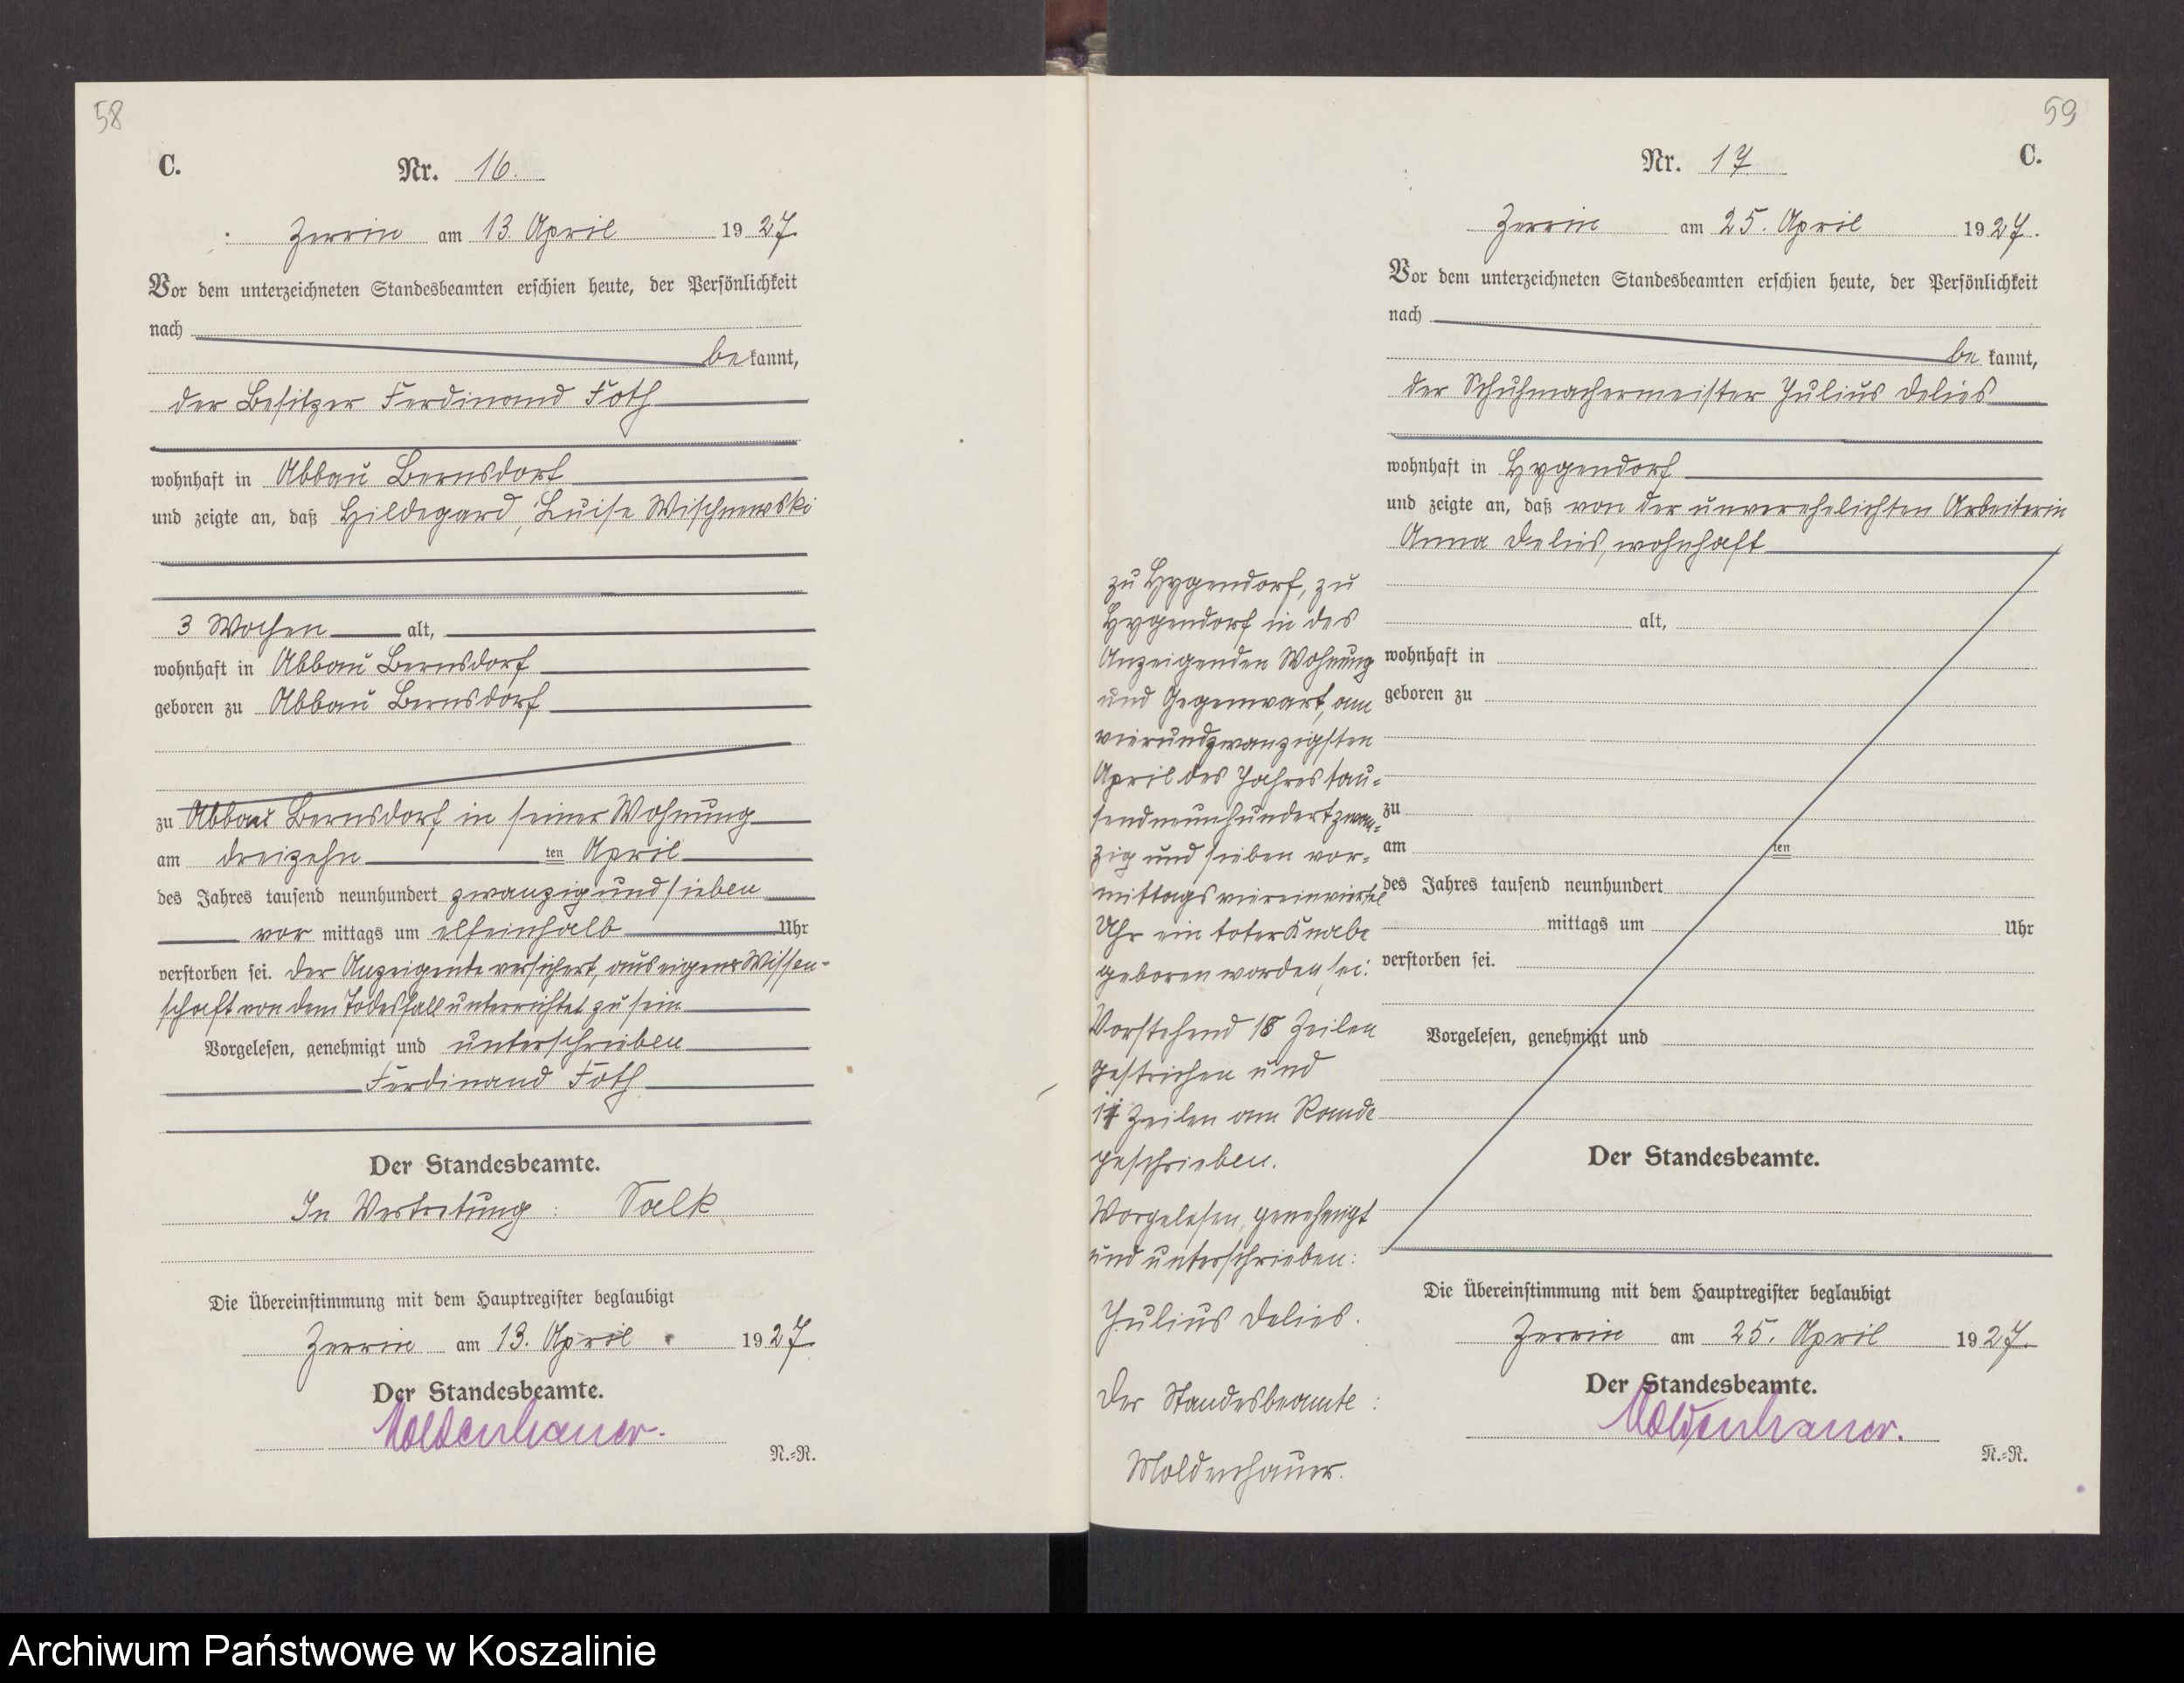 58
C.
Nr. 16.
Zerrin am 13. April 1927.
Vor dem unterzeichneten Standesbeamten erschien heute, der Persönlichkeit
nach
be kannt,
der Besitzer Ferdinand Foth
wohnhaft in Abbau Bernsdorf
und zeigte an, daß Hildegard, Luise Wischnewski
3 Wochen alt,
wohnhaft in Abbau Bernsdorf
geboren zu Abbau Bernsdorf
zu Abbau Bernsdorf in seiner Wohnung
am dreizehn ten April
des Jahres tausend neunhundert zwanzig und sieben
vor mittags um elfeinhalb Uhr
verstorben sei. Der Anzeigende versichert, aus eigener Wissen-
schaft von dem Todesfall unterrichtet zu sein
Vorgelesen, genehmigt und unterschrieben
Ferdinand Foth
Der Standesbeamte.
In Vertretung: Salk
Die Übereinstimmung mit dem Hauptregister beglaubigt
Zerrin am 13. April 1927.
Der Standesbeamte.
Moldenhauer.
N.=R.
59
Nr. 17
C.
Zerrin am 25. April 1927.
Vor dem unterzeichneten Standesbeamten erschien heute, der Persönlichkeit
nach
be kannt,
der Schuhmachermeister Julius Delies
wohnhaft in Hygendorf
und zeigte an, daß von der unverehelichten Arbeiterin
Anna Delies, wohnhaft
zu Hygendorf, zu
Hygendorf in des
Anzeigenden Wohnung
und Gegenwart, am
vierundzwanzigsten
April des Jahres tau-
sendneunhundertzwan-
zig und sieben vor-
mittags viereinviertel
Uhr ein toter Knabe
geboren worden sei:
Vorstehend 18 Zeilen
gestrichen und
11 Zeilen am Rande
geschrieben.
Vorgelesen, genehmigt
und unterschrieben:
Julius Delies.
Der Standesbeamte:
Moldenhauer.
alt,
wohnhaft in
geboren zu
zu
am ten
des Jahres tausend neunhundert
mittags um Uhr
verstorben sei.
Vorgelesen, genehmigt und
Der Standesbeamte.
Die Übereinstimmung mit dem Hauptregister beglaubigt
Zerrin am 25. April 1927.
Der Standesbeamte.
Moldenhauer.
N.=R.
Archiwum Państwowe w Koszalinie